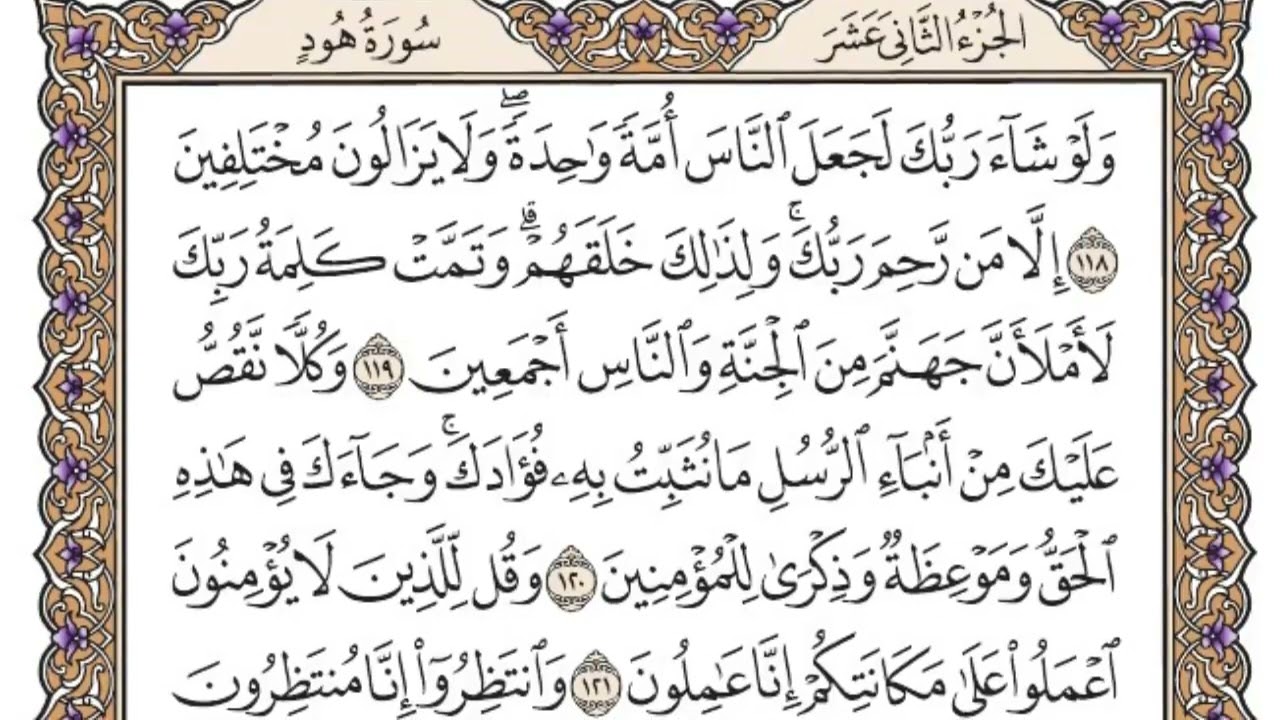 الجُزْءُ الثَّانِي عَشَرَ
سُورَةُ هُودٍ
وَلَوْ شَآءَ رَبُّكَ لَجَعَلَ ٱلنَّاسَ أُمَّةً وَٰحِدَةً ۖ وَلَا يَزَالُونَ مُخْتَلِفِينَ
١١٨ إِلَّا مَن رَّحِمَ رَبُّكَ ۚ وَلِذَٰلِكَ خَلَقَهُمْ ۗ وَتَمَّتْ كَلِمَةُ رَبِّكَ
لَأَمْلَأَنَّ جَهَنَّمَ مِنَ ٱلْجِنَّةِ وَٱلنَّاسِ أَجْمَعِينَ ١١٩ وَكُلًّا نَّقُصُّ
عَلَيْكَ مِنْ أَنۢبَآءِ ٱلرُّسُلِ مَا نُثَبِّتُ بِهِۦ فُؤَادَكَ ۚ وَجَآءَكَ فِى هَٰذِهِ
ٱلْحَقُّ وَمَوْعِظَةٌ وَذِكْرَىٰ لِلْمُؤْمِنِينَ ١٢٠ وَقُل لِّلَّذِينَ لَا يُؤْمِنُونَ
ٱعْمَلُوا۟ عَلَىٰ مَكَانَتِكُمْ إِنَّا عَٰمِلُونَ ١٢١ وَٱنتَظِرُوٓا۟ إِنَّا مُنتَظِرُونَ